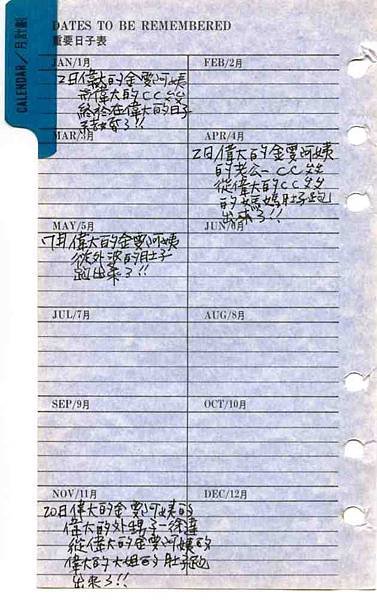 CALENDAR／月計劃
DATES TO BE REMEMBERED
重要日子表
JAN/1月
2日偉大的金雯阿姨
而偉大的CC
終於在偉大的日子
結婚了!!
FEB/2月
MAR/3月
APR/4月
2日偉大的金雯阿姨
的老公-CC
從偉大的CC
的媽媽肚子跑
出來了!!
MAY/5月
7日偉大的金雯阿姨
從外婆的肚子
跑出來了!!
JUN/6月
JUL/7月
AUG/8月
SEP/9月
OCT/10月
NOV/11月
20日偉大的金雯阿姨的
偉大的外甥子-徐
從偉大的金雯阿姨的
偉大的大姐的肚子跑
出來了!!
DEC/12月